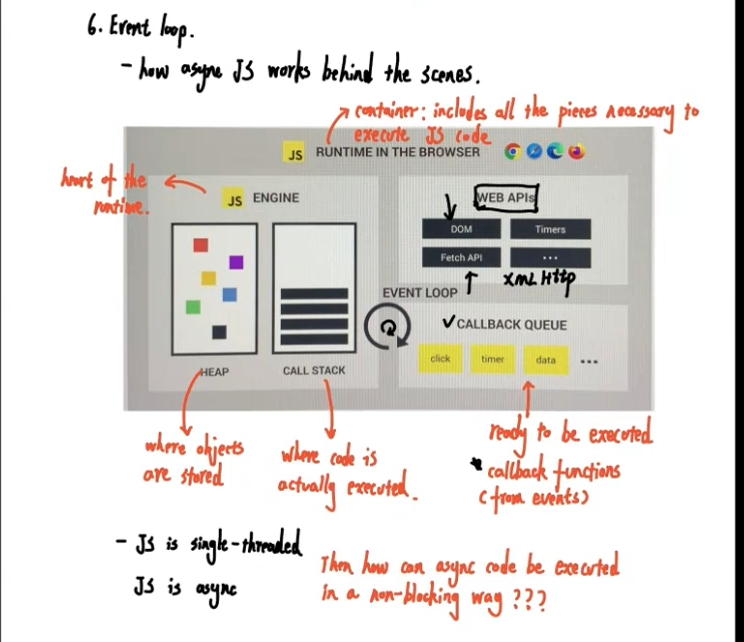 6. Event loop.
- how async JS works behind the scenes.
container: includes all the pieces necessary to
execute JS code
JS RUNTIME IN THE BROWSER
heart of the
runtime.
JS ENGINE
WEB APIs
DOM
Timers
Fetch API
...
XML Http
EVENT LOOP
CALLBACK QUEUE
click
timer
data
...
HEAP
CALL STACK
where objects
are stored
where code is
actually executed.
ready to be executed
callback functions
(from events)
- JS is single-threaded
JS is async
Then how can async code be executed
in a non-blocking way ???